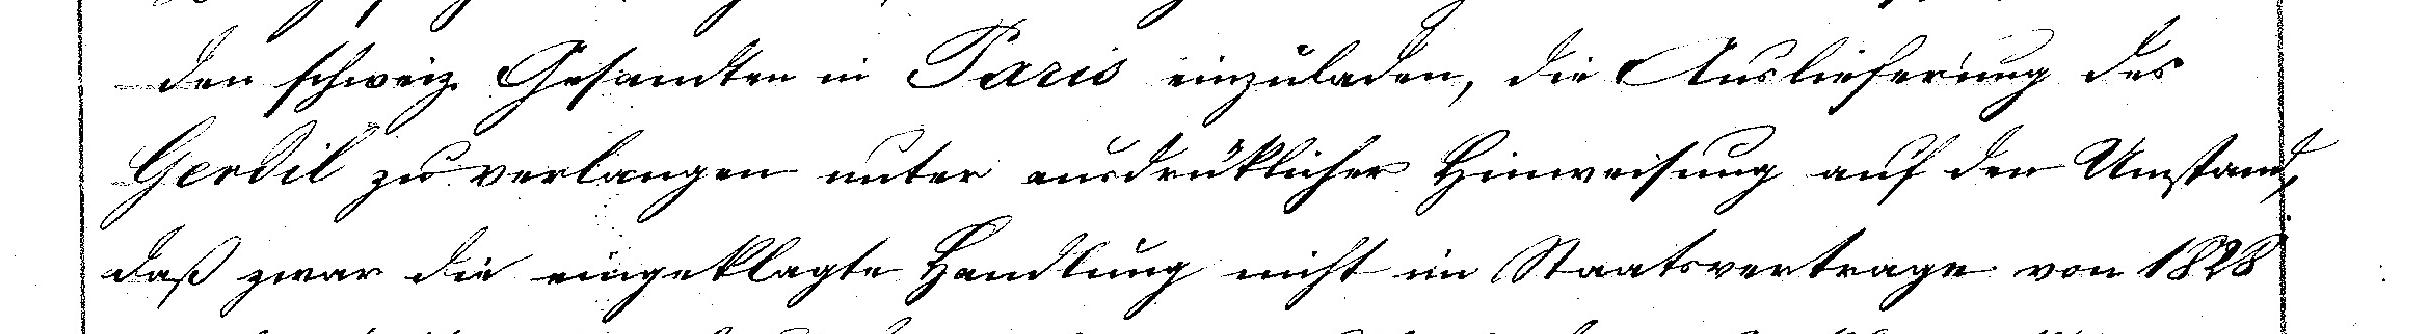 den schweiz. Gesandten in Paris einzuladen, die Auslieferung des
Gerdil zu verlangen unter ausdrüklicher Hinweisung auf den Umstand,
daß zwar die eingeklagte Handlung nicht im Staatsvertrage von 1828